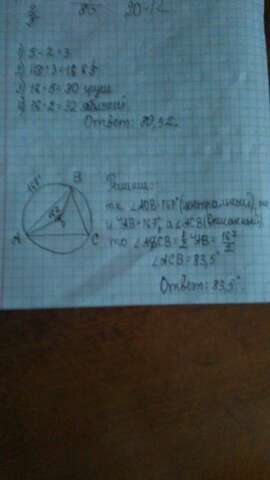 1) 5-2=3
2) 48:3=16
3) 16·5=80 груш
4) 16·2=32
Ответ: 80, 32.
B
A
C
Решение:
т.к. ∠AOB=167° (центральный), то
и ◡AB=167°, а ∠ACB (вписанный)
то ∠ACB=1/2 ◡AB=167/2
∠ACB=83,5°
Ответ: 83,5°.